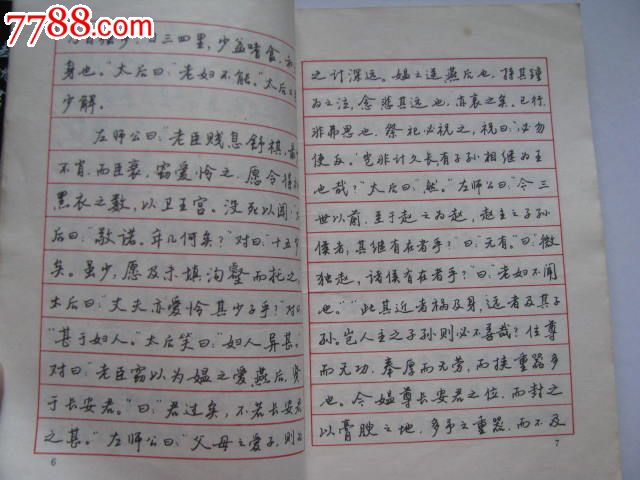 7788.com
三四里，少益嗜食，
身也。”太后曰：“老妇不能。”太后之
少解。
左师公曰：“老臣贱息舒祺，最
不肖，而臣衰，窃爱怜之，愿令得
黑衣之数，以卫王宫。没死以闻。”
后曰：“敬诺。年几何矣？”对曰：“十五岁
矣。虽少，愿及未填沟壑而托之。
太后曰：“丈夫亦爱怜其少子乎？”对曰
“甚于妇人。”太后笑曰：“妇人异甚。
对曰：“老臣窃以为媪之爱燕后，贤
于长安君。”曰：“君过矣，不若长安君
之甚。”左师公曰：“父母之爱子，则
6
之计深远。媪之送燕后也，持其踵
为之泣，念悲其远也，亦哀之矣。已行，
非弗思也，祭祀必祝之，祝曰：‘必勿
使反。’岂非计久长有子孙相继为王
也哉？”太后曰：“然。”左师公曰：“今三
世以前，至于赵之为赵，赵主之子孙
侯者，其继有在者乎？”曰：“无有。”曰：“微
独赵，诸侯有在者乎？”曰：“老妇不闻
也。”“此其近者祸及身，远者及其子
孙。岂人主之子孙则必不善哉？位尊
而无功，奉厚而无劳，而挟重器多
也。今媪尊长安君之位，而封之
以膏腴之地，多予之重器，而不及
7